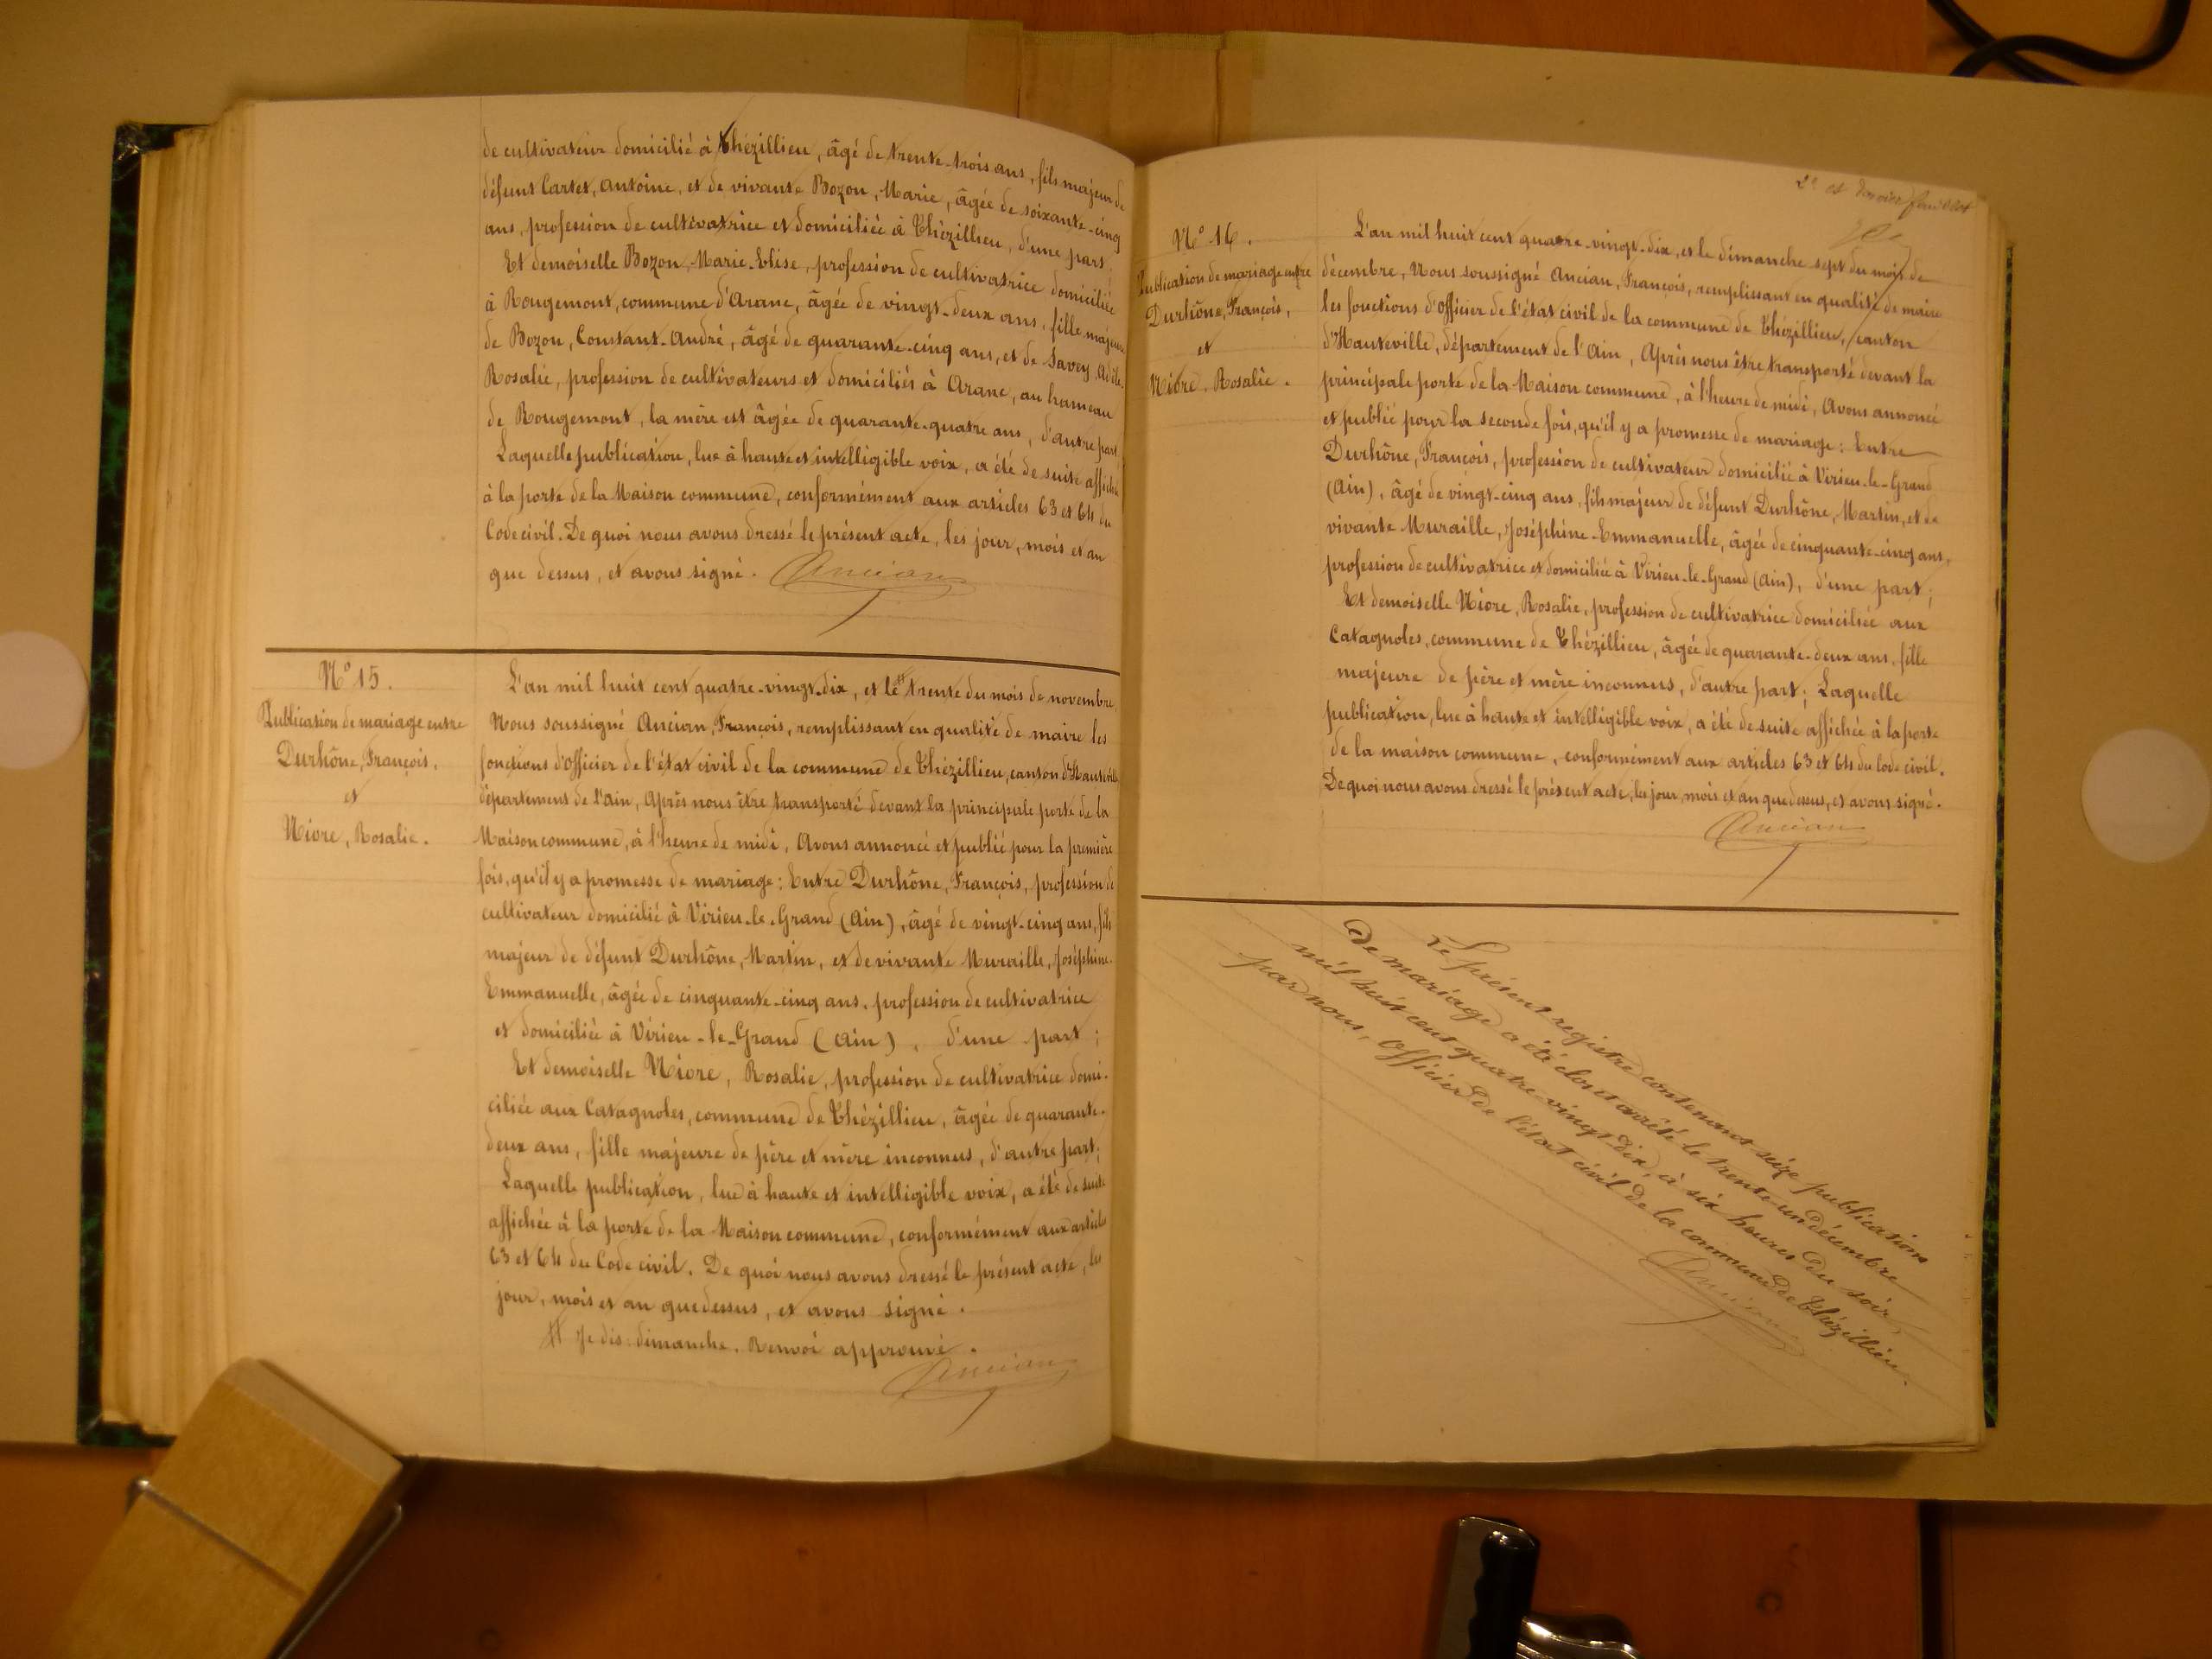 de cultivateur domicilié à Thézillieu, âgé de trente-trois ans, fils majeur de
défunt Cartet, Antoine, et de vivante Bozon, Marie, âgée de soixante-cinq
ans, profession de cultivatrice et domiciliée à Thézillieu, d'une part;
Et demoiselle Bozon, Marie-Elise, profession de cultivatrice domiciliée
à Rougemont, commune d'Aranc, âgée de vingt-deux ans, fille majeure
de Bozon, Constant-André, âgé de quarante-cinq ans, et de Savey, Adèle-
Rosalie, profession de cultivateurs et domiciliés à Aranc, au hameau
de Rougemont, la mère est âgée de quarante-quatre ans, d'autre part;
Laquelle publication, lue à haute et intelligible voix, a été de suite affichée
à la porte de la Maison commune, conformément aux articles 63 et 64 du
Code civil. De quoi nous avons dressé le présent acte, les jour, mois et an
que dessus, et avons signé. Ancian
N° 15.
Publication de mariage entre
Durhône, François,
et
Niore, Rosalie.
L'an mil huit cent quatre-vingt-dix, et le # trente du mois de novembre,
Nous soussigné Ancian, François, remplissant en qualité de maire les
fonctions d'Officier de l'état civil de la commune de Thézillieu, canton d'Hauteville
département de l'Ain, Après nous être transporté devant la principale porte de la
Maison commune, à l'heure de midi, Avons annoncé et publié pour la première
fois, qu'il y a promesse de mariage: Entre Durhône, François, profession de
cultivateur domicilié à Virieu-le-Grand (Ain), âgé de vingt-cinq ans, fils
majeur de défunt Durhône, Martin, et de vivante Muraille, Joséphine-
Emmanuelle, âgée de cinquante-cinq ans, profession de cultivatrice
et domiciliée à Virieu-le-Grand (Ain), d'une part;
Et demoiselle Niore, Rosalie, profession de cultivatrice domi-
ciliée aux Catagnoles, commune de Thézillieu, âgée de quarante-
deux ans, fille majeure de père et mère inconnus, d'autre part;
Laquelle publication, lue à haute et intelligible voix, a été de suite
affichée à la porte de la Maison commune, conformément aux articles
63 et 64 du Code civil. De quoi nous avons dressé le présent acte, les
jour, mois et an que dessus, et avons signé.
# Je dis: dimanche. Renvoi approuvé.
Ancian
2e et dernier feuillet
N° 16.
Publication de mariage entre
Durhône, François,
et
Niore, Rosalie.
L'an mil huit cent quatre-vingt-dix, et le dimanche sept du mois de
décembre, Nous soussigné Ancian, François, remplissant en qualité de maire
les fonctions d'Officier de l'état civil de la commune de Thézillieu, canton
d'Hauteville, département de l'Ain, Après nous être transporté devant la
principale porte de la Maison commune, à l'heure de midi, Avons annoncé
et publié pour la seconde fois, qu'il y a promesse de mariage: Entre
Durhône, François, profession de cultivateur domicilié à Virieu-le-Grand
(Ain), âgé de vingt-cinq ans, fils majeur de défunt Durhône, Martin, et de
vivante Muraille, Joséphine-Emmanuelle, âgée de cinquante-cinq ans,
profession de cultivatrice et domiciliée à Virieu-le-Grand (Ain), d'une part;
Et demoiselle Niore, Rosalie, profession de cultivatrice domiciliée aux
Catagnoles, commune de Thézillieu, âgée de quarante-deux ans, fille
majeure de père et mère inconnus, d'autre part; Laquelle
publication, lue à haute et intelligible voix, a été de suite affichée à la porte
de la maison commune, conformément aux articles 63 et 64 du Code civil.
De quoi nous avons dressé le présent acte, les jour, mois et an que dessus, et avons signé.
Ancian
Le présent registre contenant seize publications
de mariage a été clos et arrêté le trente-un décembre
mil huit cent quatre-vingt-dix, à six heures du soir,
par nous, Officier de l'état civil de la commune de Thézillieu.
Ancian